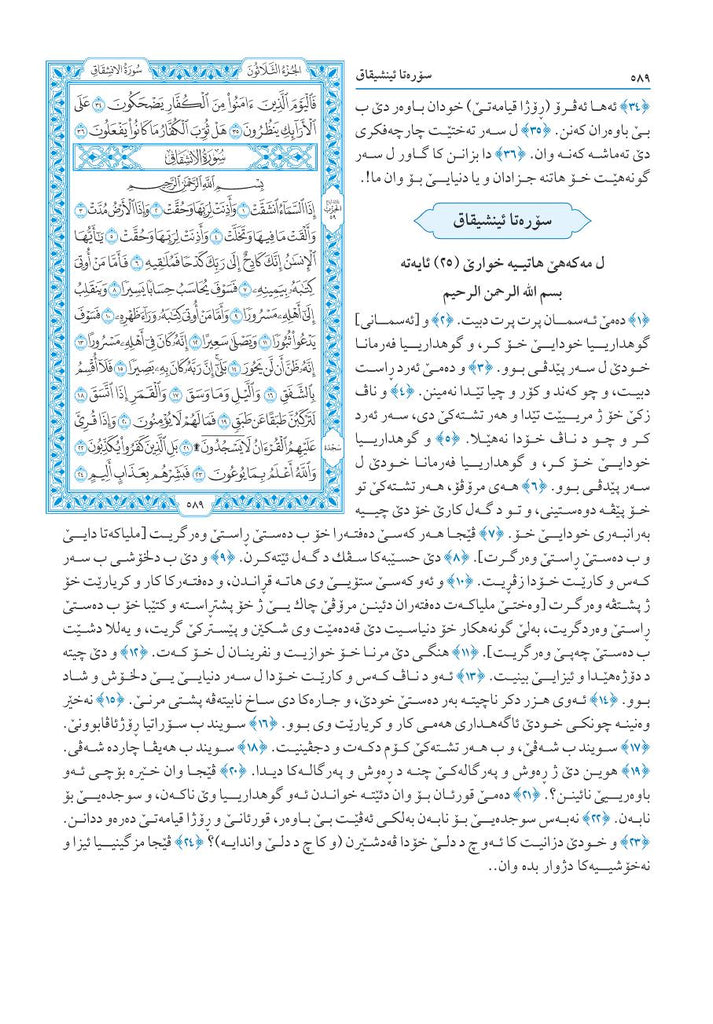 ٥٨٩
سۆرەتا ئینشیقاق
﴿٣٤﴾ ئەها ئەڤرۆ (ڕۆژا قیامەتێ) خودان باوەر دێ ب
بێ باوەران کەنن. ﴿٣٥﴾ ل سەر تەختێت چارچەفکری
دێ تەماشە کەنە وان. ﴿٣٦﴾ دا بزانن کا گاور ل سەر
گونەهێت خۆ هاتنە جزادان و یا دنیایێ بۆ وان ما!.
سۆرەتا ئینشیقاق
ل مەکەهێ هاتییە خوارێ (٢٥) ئایەتە
بسم الله الرحمن الرحیم
﴿١﴾ دەمێ ئەسمان پرت پرت دبیت. ﴿٢﴾ و [ئەسمانی]
گوهداریا خودایێ خۆ کر، و گوهداریا فەرمانا
خودێ ل سەر پێدڤی بوو. ﴿٣﴾ و دەمێ ئەرد ڕاست
دبیت، و چو کەند و کۆر و چیا تێدا نەمینن. ﴿٤﴾ و ناڤ
زکێ خۆ ژ مرییێت تێدا و هەر تشتەکێ دی، سەر ئەرد
کر و چو د ناڤ خۆدا نەهێلا. ﴿٥﴾ و گوهداریا
خودایێ خۆ کر، و گوهداریا فەرمانا خودێ ل
سەر پێدڤی بوو. ﴿٦﴾ هەی مرۆڤۆ، هەر تشتەکێ تو
خۆ پێڤە دوەستینی، و تو د گەل کارێ خۆ دێ چییە
بەرانبەری خودایێ خۆ. ﴿٧﴾ ڤێجا هەر کەسێ دەفتەرا خۆ ب دەستێ ڕاستێ وەرگریت [ملیاکەتا دایێ
و ب دەستێ ڕاستێ وەرگرت]. ﴿٨﴾ دێ حسێبەکا سڤك د گەل ئێتەکرن. ﴿٩﴾ و دێ ب دلخۆشی ب سەر
کەس و کارێت خۆدا زڤڕیت. ﴿١٠﴾ و ئەو کەسێ ستۆیێ وی هاتە قڕاندن، و دەفتەرکا کار و کریارێت خۆ
ژ پشتڤە وەرگرت [وەختێ ملیاکەت دەفتەران دئینن مرۆڤێ چاك یێ ژ خۆ پشتڕاستە و کتێبا خۆ ب دەستێ
ڕاستێ وەردگریت، بەلێ گونەهکار خۆ دنیاسیت دێ قەدەمێت وی شکێن و پێسترکێ گریت، و یەللا دشێت
ب دەستێ چەپێ وەرگریت]. ﴿١١﴾ هنگی دێ مرنا خۆ خوازیت و نفرینان ل خۆ کەت. ﴿١٢﴾ و دێ چیتە
د دۆژەهێدا و ئیزایێ بینیت. ﴿١٣﴾ ئەو د ناڤ کەس و کارێت خۆدا ل سەر دنیایێ یێ دلخۆش و شاد
بوو. ﴿١٤﴾ ئەوی هزر دکر ناچیتە بەر دەستێ خودێ، و جارەکا دی ساخ نابیتەڤە پشتی مرنێ. ﴿١٥﴾ نەخێر
وەنینە چونکی خودێ ئاگەهداری هەمی کار و کریارێت وی بوو. ﴿١٦﴾ سویند ب سۆراتیا ڕۆژئاڤابوونێ.
﴿١٧﴾ سویند ب شەڤێ، و ب هەر تشتەکێ کۆم دکەت و دجڤینیت. ﴿١٨﴾ سویند ب هەیڤا چاردە شەڤی.
﴿١٩﴾ هوین دێ ژ ڕەوش و پەرگالەکێ چنە د ڕەوش و پەرگالەکا دیدا. ﴿٢٠﴾ ڤێجا وان خێرە بۆچی ئەو
باوەرییێ نائینن؟. ﴿٢١﴾ دەمێ قورئان بۆ وان دئێتە خواندن ئەو گوهداریا وێ ناکەن، و سوجدەیێ بۆ
نابەن. ﴿٢٢﴾ نەبەس سوجدەیێ بۆ نابەن بەلکی ئەڤێت بێ باوەر، قورئانێ و ڕۆژا قیامەتێ دەرەو ددانن.
﴿٢٣﴾ و خودێ دزانیت کا ئەو چ د دلێ خۆدا ڤەدشێرن (و کا چ د دلێ واندایە)؟ ﴿٢٤﴾ ڤێجا مزگینیا ئیزا و
نەخۆشییەکا دژوار بدە وان..
الجزء الثلاثون
سورة الانشقاق
فَٱلْيَوْمَ ٱلَّذِينَ ءَامَنُوا۟ مِنَ ٱلْكُفَّارِ يَضْحَكُونَ ٣٤ عَلَى
ٱلْأَرَآئِكِ يَنظُرُونَ ٣٥ هَلْ ثُوِّبَ ٱلْكُفَّارُ مَا كَانُوا۟ يَفْعَلُونَ ٣٦
سُورَةُ الانشِقَاقِ
بِسْمِ ٱللَّهِ ٱلرَّحْمَٰنِ ٱلرَّحِيمِ
إِذَا ٱلسَّمَآءُ ٱنشَقَّتْ ١ وَأَذِنَتْ لِرَبِّهَا وَحُقَّتْ ٢ وَإِذَا ٱلْأَرْضُ مُدَّتْ ٣
وَأَلْقَتْ مَا فِيهَا وَتَخَلَّتْ ٤ وَأَذِنَتْ لِرَبِّهَا وَحُقَّتْ ٥ يَٰٓأَيُّهَا
ٱلْإِنسَٰنُ إِنَّكَ كَادِحٌ إِلَىٰ رَبِّكَ كَدْحًا فَمُلَٰقِيهِ ٦ فَأَمَّا مَنْ أُوتِىَ
كِتَٰبَهُۥ بِيَمِينِهِۦ ٧ فَسَوْفَ يُحَاسَبُ حِسَابًا يَسِيرًا ٨ وَيَنقَلِبُ
إِلَىٰٓ أَهْلِهِۦ مَسْرُورًا ٩ وَأَمَّا مَنْ أُوتِىَ كِتَٰبَهُۥ وَرَآءَ ظَهْرِهِۦ ١٠ فَسَوْفَ
يَدْعُوا۟ ثُبُورًا ١١ وَيَصْلَىٰ سَعِيرًا ١٢ إِنَّهُۥ كَانَ فِىٓ أَهْلِهِۦ مَسْرُورًا ١٣
إِنَّهُۥ ظَنَّ أَن لَّن يَحُورَ ١٤ بَلَىٰٓ إِنَّ رَبَّهُۥ كَانَ بِهِۦ بَصِيرًا ١٥ فَلَآ أُقْسِمُ
بِٱلشَّفَقِ ١٦ وَٱلَّيْلِ وَمَا وَسَقَ ١٧ وَٱلْقَمَرِ إِذَا ٱتَّسَقَ ١٨
لَتَرْكَبُنَّ طَبَقًا عَن طَبَقٍ ١٩ فَمَا لَهُمْ لَا يُؤْمِنُونَ ٢٠ وَإِذَا قُرِئَ
عَلَيْهِمُ ٱلْقُرْءَانُ لَا يَسْجُدُونَ ۩ ٢١ بَلِ ٱلَّذِينَ كَفَرُوا۟ يُكَذِّبُونَ ٢٢
وَٱللَّهُ أَعْلَمُ بِمَا يُوعُونَ ٢٣ فَبَشِّرْهُم بِعَذَابٍ أَلِيمٍ ٢٤
الحزب
٥٩
سجدة
٥٨٩